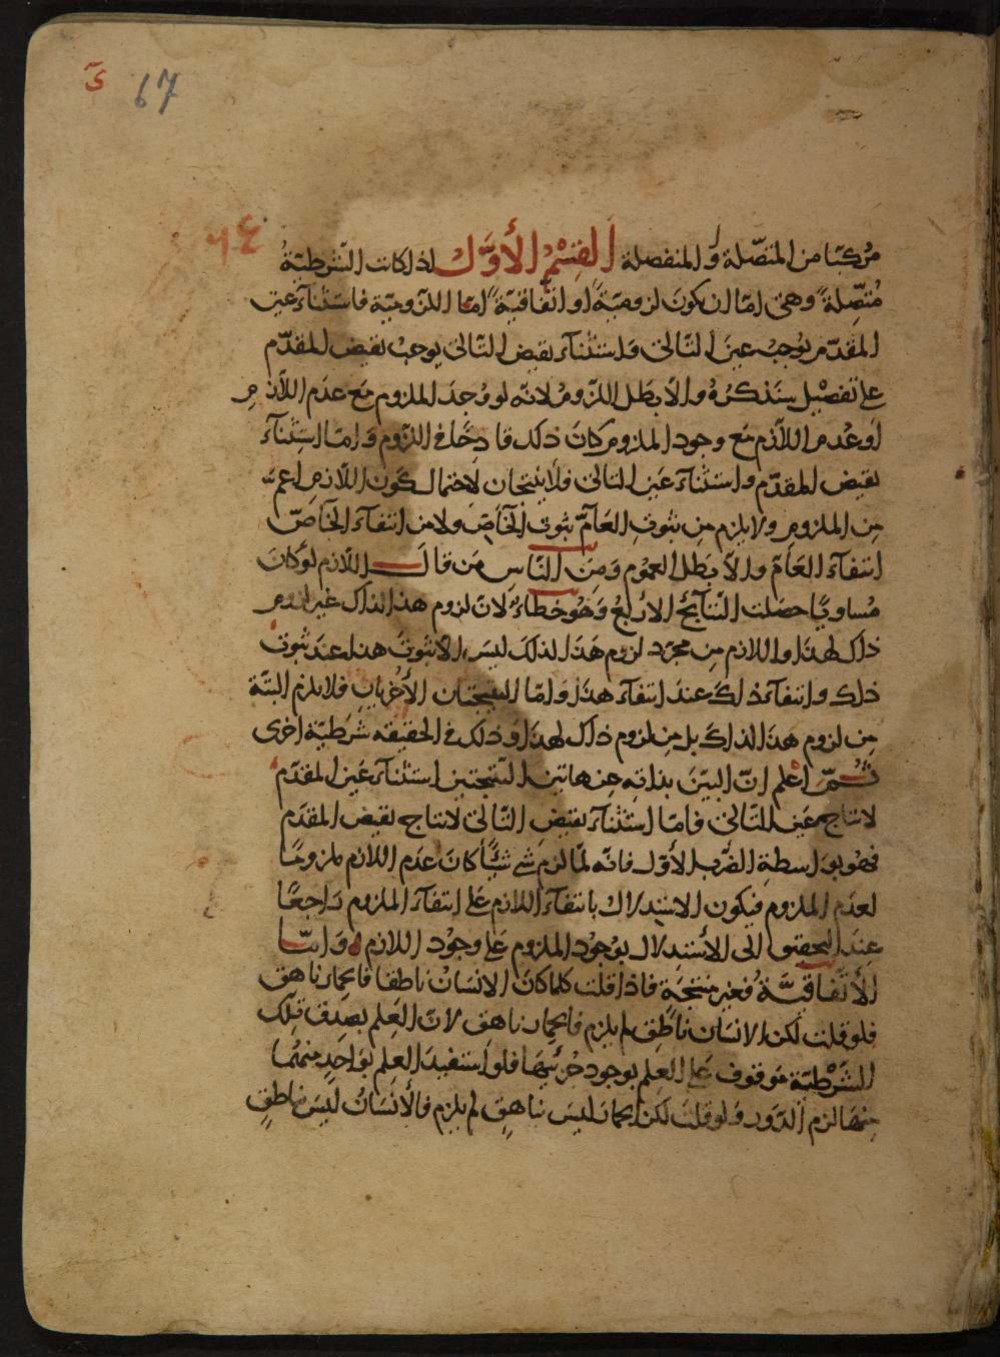 67
مركبا من المتصلة والمنفصلة القسم الأول اذا كانت الشرطية
متصلة وهي اما ان يكون لزومية او اتفاقية اما اللزومية فاستثناء عين
المقدم يوجب عين التالى واستثناء نقيض التالى يوجب نقيض المقدم
على تفصيل سنذكره والا بطل اللزوم لانه لو وجد الملزوم مع عدم اللازم
او عدم اللازم مع وجود الملزوم كان ذلك قادحا فى اللزوم واما استثناء
نقيض المقدم واستثناء عين التالى فلا ينتجان لاحتمال كون اللازم اعم
من الملزوم ولا يلزم من ثبوت العام ثبوت الخاص ولا من انتفاء الخاص
انتفاء العام والا بطل العموم ومن الناس من قال اللازم لو كان
مساويا حصلت النتايج الاربع وهو خطاء لان لزوم هذا لذاك غير لزوم
ذاك لهذا واللازم من مجرد لزوم هذا لذلك ليس الا ثبوت هذا عند ثبوت
ذلك وانتفاء ذلك عند انتفاء هذا واما النتيجتان الأخريان فلا يلزم البتة
من لزوم هذا لذاك بل من لزوم ذاك لهذا وذلك فى الحقيقه شرطية اخرى
ثم اعلم ان البين بذاته من هاتين النتيجتين استثناء عين المقدم
لانتاج عين التالى فاما استثناء نقيض التالى لانتاج نقيض المقدم
فهو بواسطة الضرب الأول فانه لما لزم شئ شيئا كان عدم اللازم ملزوما
لعدم الملزوم فيكون الاستدلال بانتفاء اللازم على انتفاء الملزوم راجعا
عند التحقيق الى الأستدلال بوجود الملزوم على وجود اللازم واما
الأتفاقية فغير منتجة فاذا قلت كلما كان الانسان ناطقا فالحمار ناهق
فلو قلت لكن الانسان ناطق لم يلزم فالحمار ناهق لان العلم بصدق تلك
الشرطية موقوف على العلم بوجود جزئيها فلو استفيد العلم بواحد منهما
منها لزم الدور ولو قلت لكن الحمار ليس ناهق لم يلزم فالأنسان ليس ناطق